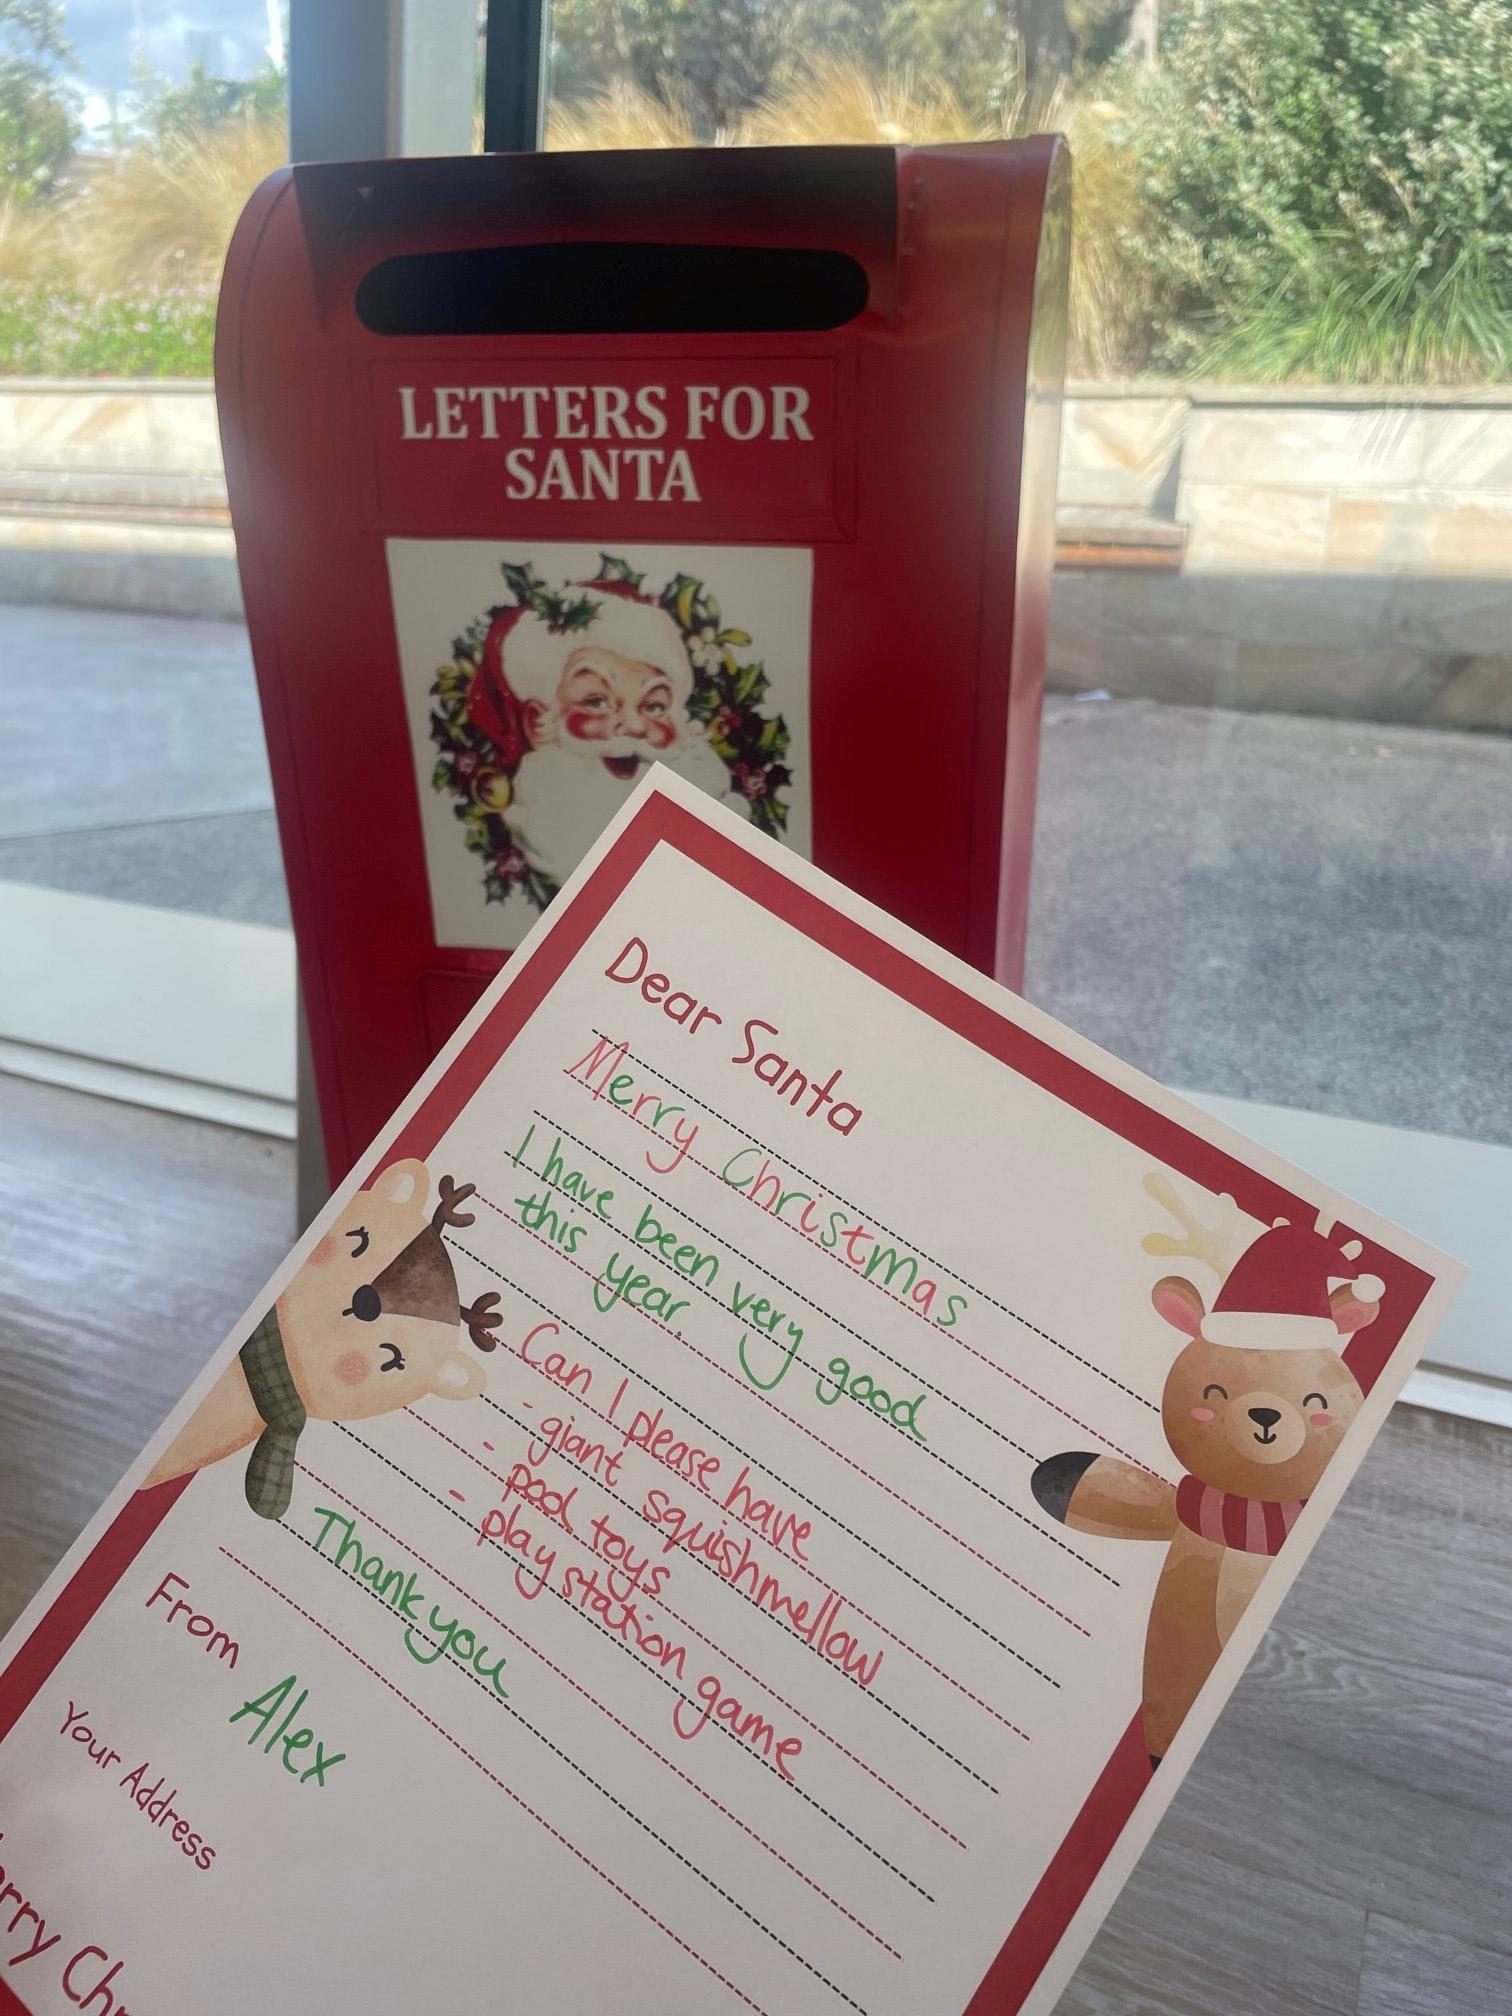 LETTERS FOR
SANTA
Dear Santa
Merry Christmas
I have been very good
this year.
Can I please have
- giant squishmellow
- pool toys
- play station game
Thank you
From Alex
Your Address